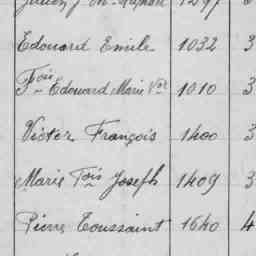 1297
Edouard Emile 1032 3
Fois Edouard Marie Vor 1010 3
Victor François 1400 3
Marie Fois Joseph 1409 3
Pierre Toussaint 1640 4